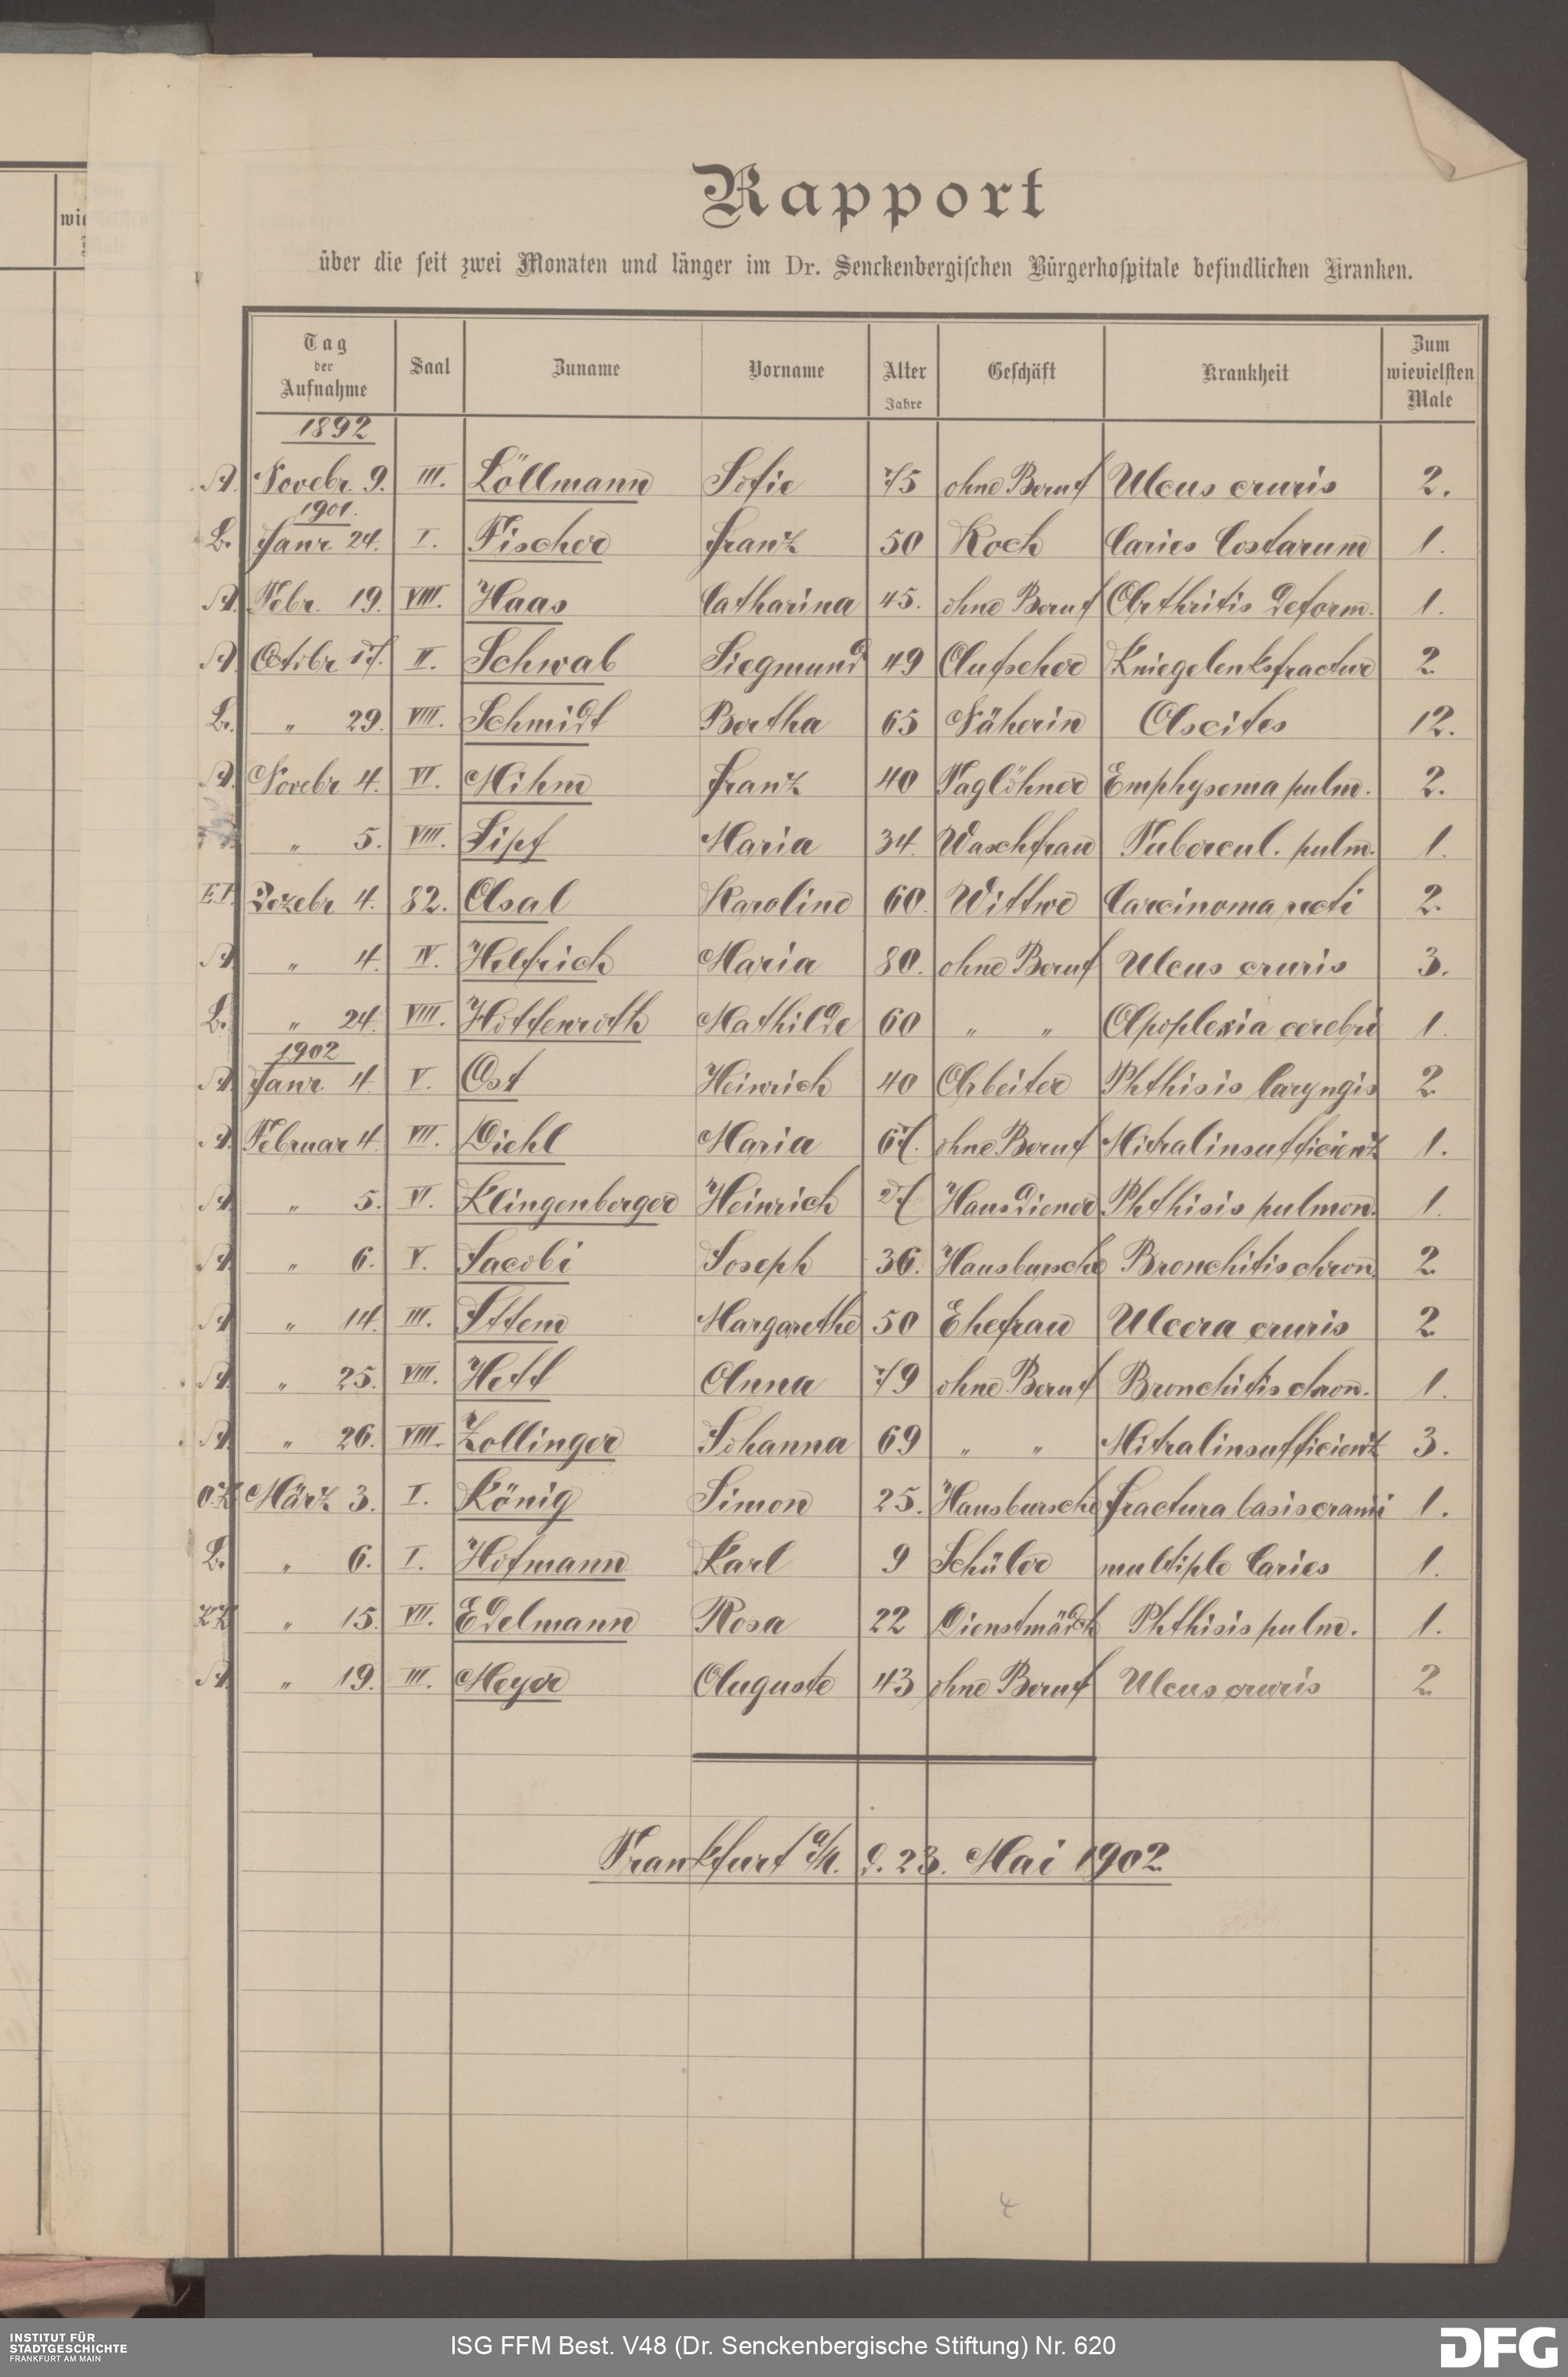 Rapport
über die seit zwei Monaten und länger im Dr. Senckenbergischen Bürgerhospitale befindlichen Kranken.
Tag der Aufnahme Saal Zuname Vorname Alter Jahre Geschäft Krankheit Zum wievielsten Male
1892
A. Novebr. 9. III. Löllmann Sofie 75 ohne Beruf Ulcus cruris 2.
1901.
L. Janr. 24. I. Fischer Franz 50 Koch Caries Costarum 1.
A. Febr. 19. VIII. Haas Catharina 45. ohne Beruf Arthritis deform. 1.
A. Octobr. 17. II. Schwab Siegmund 49 Aufseher Kniegelenksfractur 2
L. " 29. VIII. Schmidt Bertha 65 Näherin Ascites 12.
A. Novebr 4. VI. Mihm Franz 40 Taglöhner Emphysema pulm. 2.
" 5. VIII. Sipf Maria 34. Waschfrau Tubercul. pulm. 1.
E.I. Dezebr 4. 82. Asal Karoline 60. Wittwe Carcinoma recti 2.
A. " 4. IV. Helfrich Maria 80. ohne Beruf Ulcus cruris 3.
L. " 24. VIII. Hottenroth Mathilde 60 " " Apoplexia cerebri 1.
1902
A. Janr. 4. V. Ost Heinrich 40 Arbeiter Phthisis laryngis 2
A. Februar 4. VII. Diehl Maria 67. ohne Beruf Mitralinsufficienz 1.
A. " 5. VI. Klingenberger Heinrich 27 Hausdiener Phthisis pulmon. 1.
A. " 6. V. Jacobi Joseph 36. Hausbursche Bronchitis chron. 2
A. " 14. III. Ittem Margarethe 50 Ehefrau Ulcera cruris 2
A. " 25. VIII. Hett Anna 79 ohne Beruf Bronchitis chron. 1.
A. " 26. VIII. Zollinger Johanna 69 " " Mitralinsufficienz 3.
O.K. März 3. I. König Simon 25. Hausbursche Fractura basis cranii 1.
L. " 6. I. Hofmann Karl 9 Schüler multiple Caries 1.
" 15. VII. Edelmann Rosa 22 Dienstmädch Phthisis pulm. 1.
A. " 19. III. Meyer Auguste 43 ohne Beruf Ulcus cruris 2
Frankfurt a/M. d. 23. Mai 1902
4
INSTITUT FÜR
STADTGESCHICHTE
FRANKFURT AM MAIN
ISG FFM Best. V48 (Dr. Senckenbergische Stiftung) Nr. 620
DFG